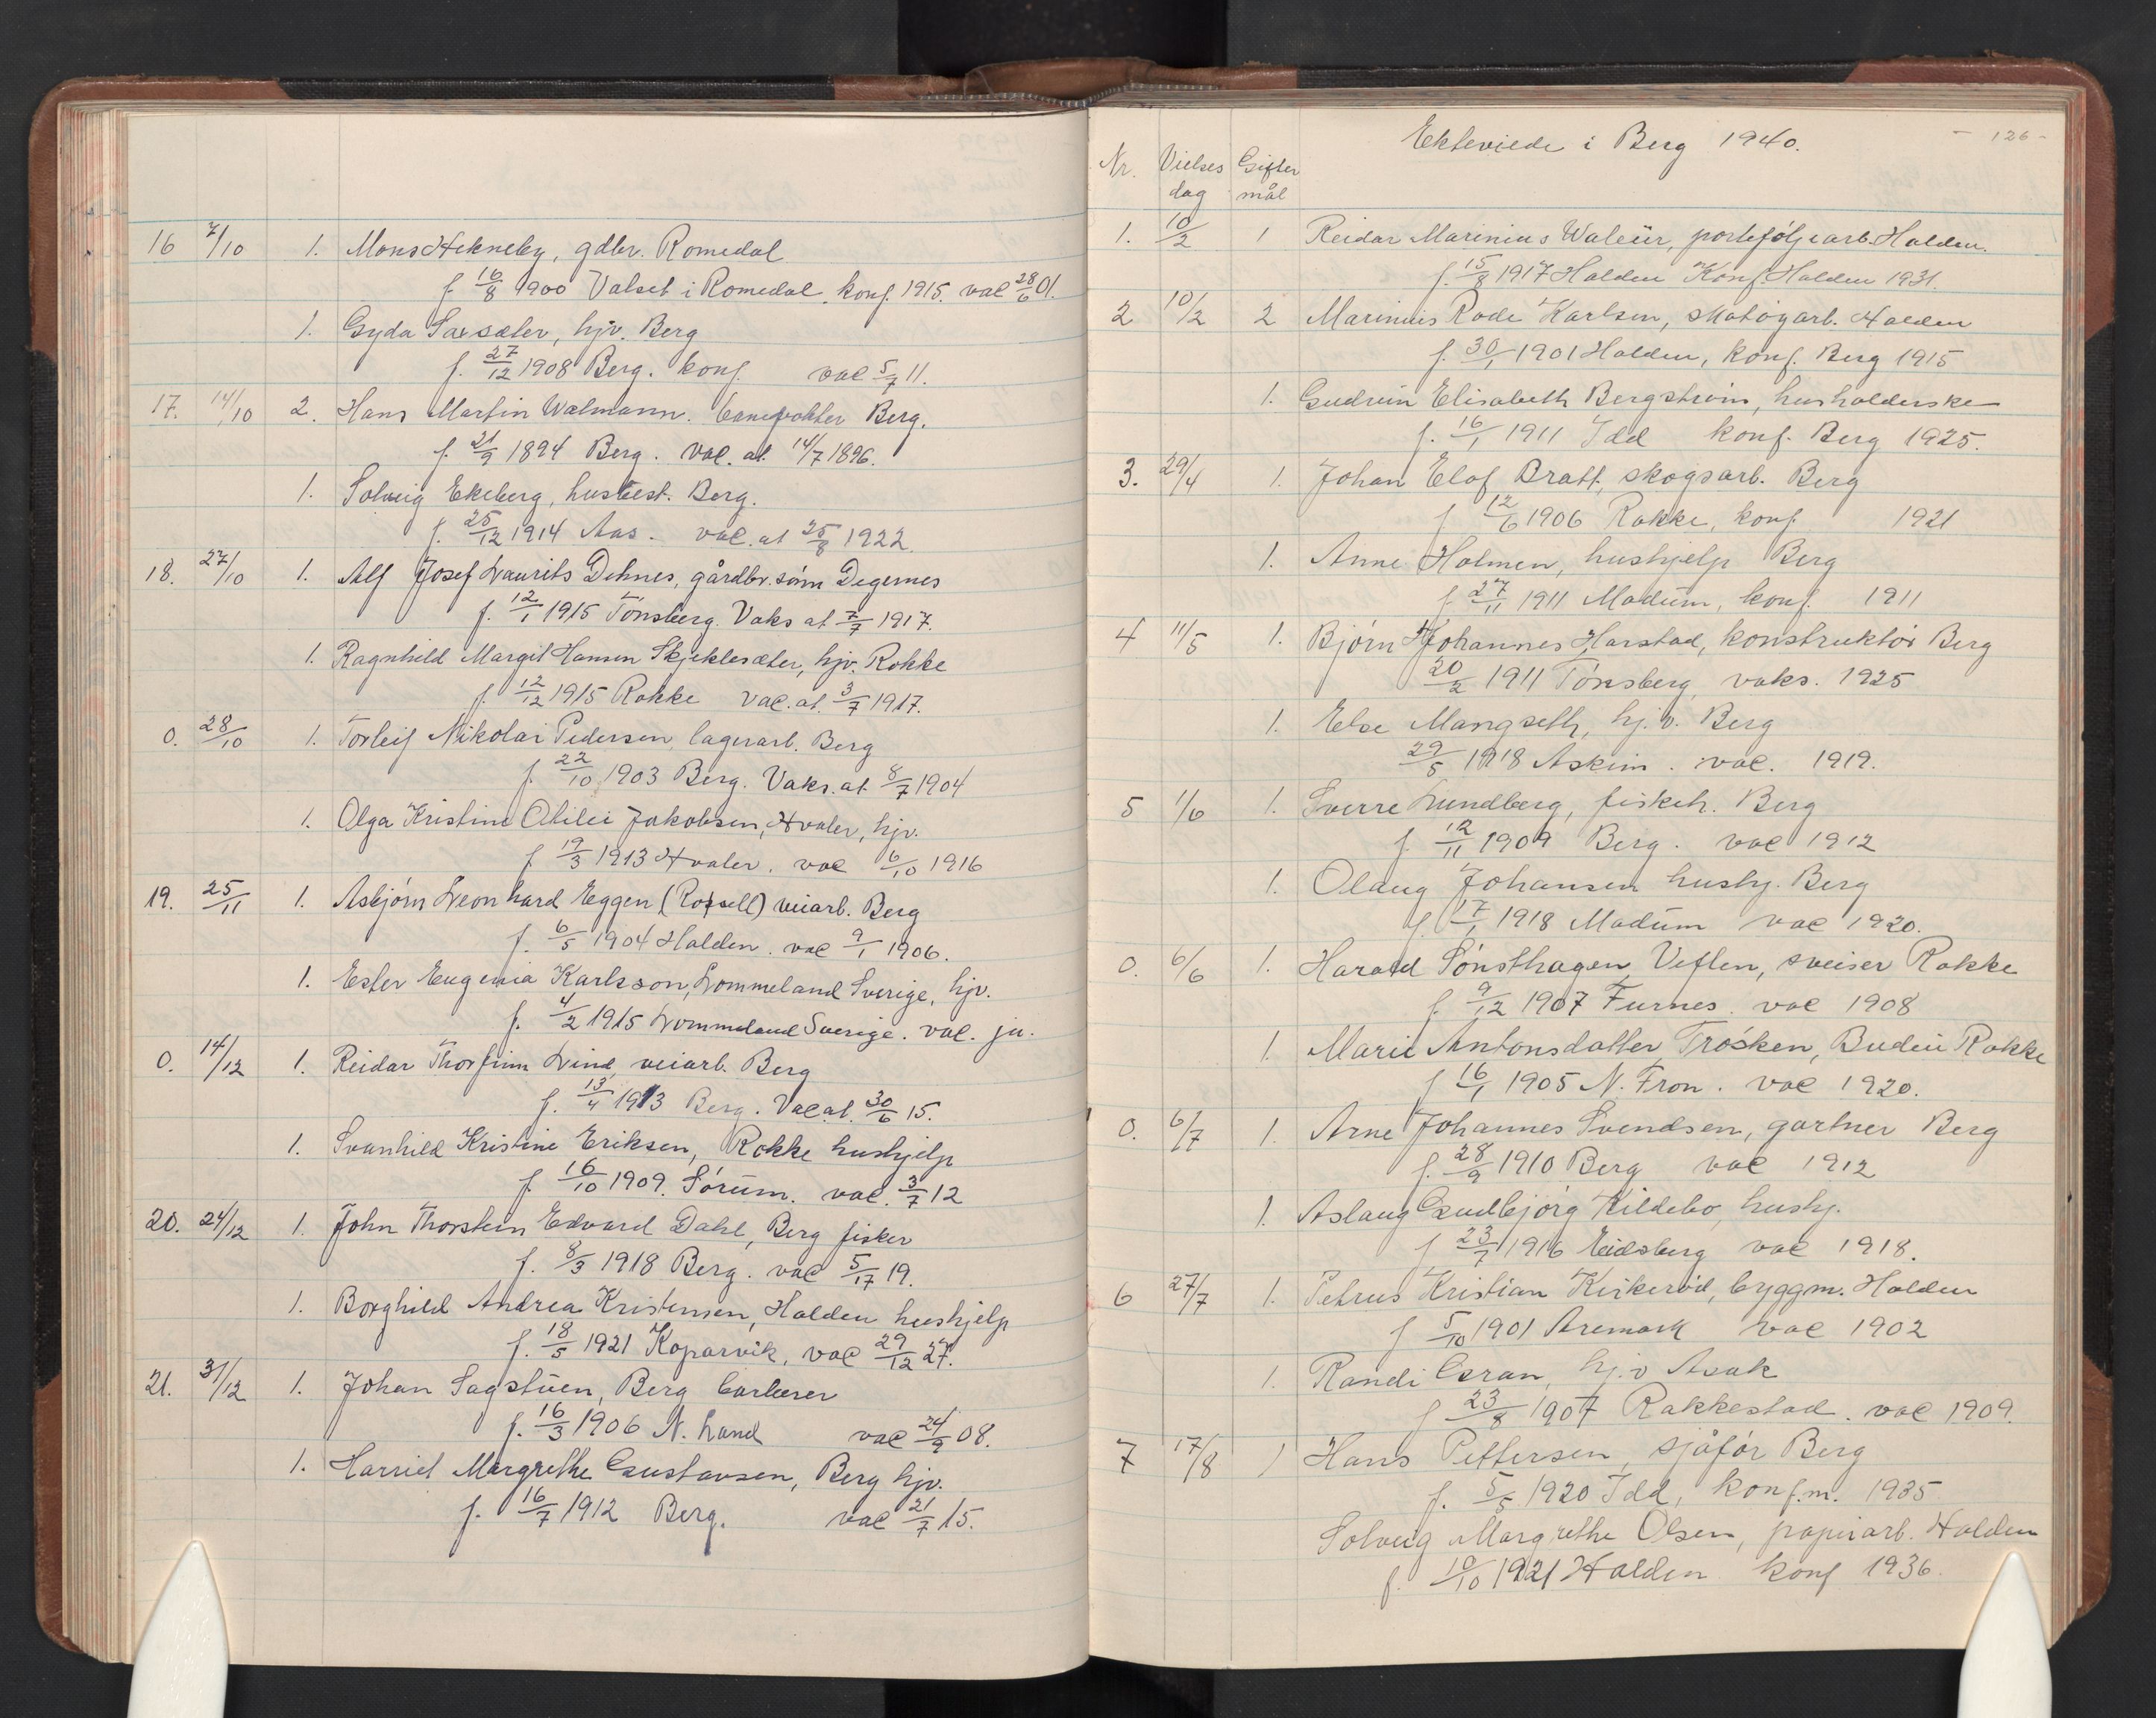 16 7/10 1. Mons Hekneby, gdbr. Romedal
f. 16/8 1900 Valset i Romedal. konf. 1915. vac 28/6 01.
1. Gyda Saxsæter, hjv. Berg
f. 27/12 1908 Berg. konf. vac 5/7 11.
17. 14/10 2. Hans Martin Walmann. banevokter Berg.
f. 21/9 1894 Berg. Vac. at 14/7 1896.
1. Solveig Ekeberg, husbest. Berg.
f. 25/12 1914 Aas. vac. at 25/8 1922.
18. 27/10 1. Alf Josef Laurits Dehnes, gårdbr. sønn Degernes
f. 12/1 1915 Tønsberg. Vaks at 7/7 1917.
1. Ragnhild Margit Hansen Skjeklesæter, hjv. Rokke
f. 12/12 1915 Rokke Vac. at. 3/7 1917.
0. 28/10 1. Torleif Nikolai Pedersen, lagerarb. Berg
f. 22/10 1903 Berg. Vaks. at 8/7 1904
1. Olga Kristine Otilie Jakobsen, Hvaler, hjv.
f 19/3 1913 Hvaler. vac 6/10 1916
19. 25/11 1. Asbjørn Leonhard Eggen (Rossell) veiarb. Berg
f. 6/5 1904 Halden. vac 9/1 1906.
1. Ester Eugenia Karlsson, Lommeland Sverige, hjv.
f. 4/2 1915 Lommeland Sverige. vac. ja.
0. 14/12 1. Reidar Thorfinn Lind, veiarb. Berg
f. 13/4 1913 Berg. Vac. at. 30/6 15.
1. Svanhild Kristine Eriksen, Rokke hushjelp
f. 16/10 1909. Sørum. vac. 3/7 12
20. 24/12 1. John Thorstein Edvard Dahl, Berg fisker
f. 8/3 1918 Berg. vac 5/17 19.
1. Borghild Andrea Kristensen, Halden hushjelp
f. 18/5 1921 Koparvik, vac 29/12 27.
21. 31/12 1. Johan Sagstuen, Berg barberer
f. 16/3 1906 N. Land vac 24/9 08.
1. Harriet Margrethe Gustavsen, Berg hjv.
f. 16/7 1912 Berg. vac 21/7 15.
Ekteviede i Berg 1940. - 126 -
Nr. Vielses dag Gifter mål
1. 10/2 1 Reidar Marinius Waleur, porteføljearb. Halden.
f. 15/8 1917 Halden Konf. Halden 1931.
2 10/2 2 Marinius Rode Karlsen, skotøyarb. Halden
f. 30/1 1901 Halden, konf. Berg 1915
1. Gudrun Elisabeth Bergstrøm, husholderske
f. 16/1 1911 Idd konf. Berg 1925.
3. 29/4 1. Johan Elof Bratt, skogsarb. Berg
f 12/6 1906 Rokke, konf. 1921
1. Anne Holmen, hushjelp Berg
f 27/11 1911 Modum, konf. 1911
4 11/5 1. Bjørn Johannes Harstad, konstruktør Berg
20/2 1911 Tønsberg, vaks. 1925
1. Else Mangseth, hj.v. Berg
29/5 1918 Askim. vac. 1919.
5 1/6 1. Sverre Lundberg, fiskeh. Berg
f. 12/11 1909 Berg. vac 1912
1. Olaug Johansen hushj. Berg
f. 17/1 1918 Modum vac 1920.
0. 6/6 1. Harald Sønsthagen Veflen, sveiser Rokke
f. 9/12 1907 Furnes. vac 1908
1. Marie Antonsdatter Trøsken, Budeie Rokke
f 16/1 1905 N. Fron. vac 1920.
0. 6/7 1. Arne Johannes Svendsen, gartner Berg
f. 28/9 1910 Berg vac 1912
1. Aslaug Gudbjørg Kildebo, hushj.
f 23/7 1916 Eidsberg vac 1918.
6 27/7 1. Petrus Kristian Kirkerød, byggm. Halden
f 5/10 1901 Aremark vac 1902
1. Randi Gran, hj.v Asak
f 23/8 1907 Rakkestad. vac 1909.
7 17/8 1 Hans Pettersen, sjåfør Berg
f. 5/5 1920 Idd, konf. m. 1935
Solveig Margrethe Olsen, papirarb. Halden
f. 10/10 1921 Halden konf 1936.